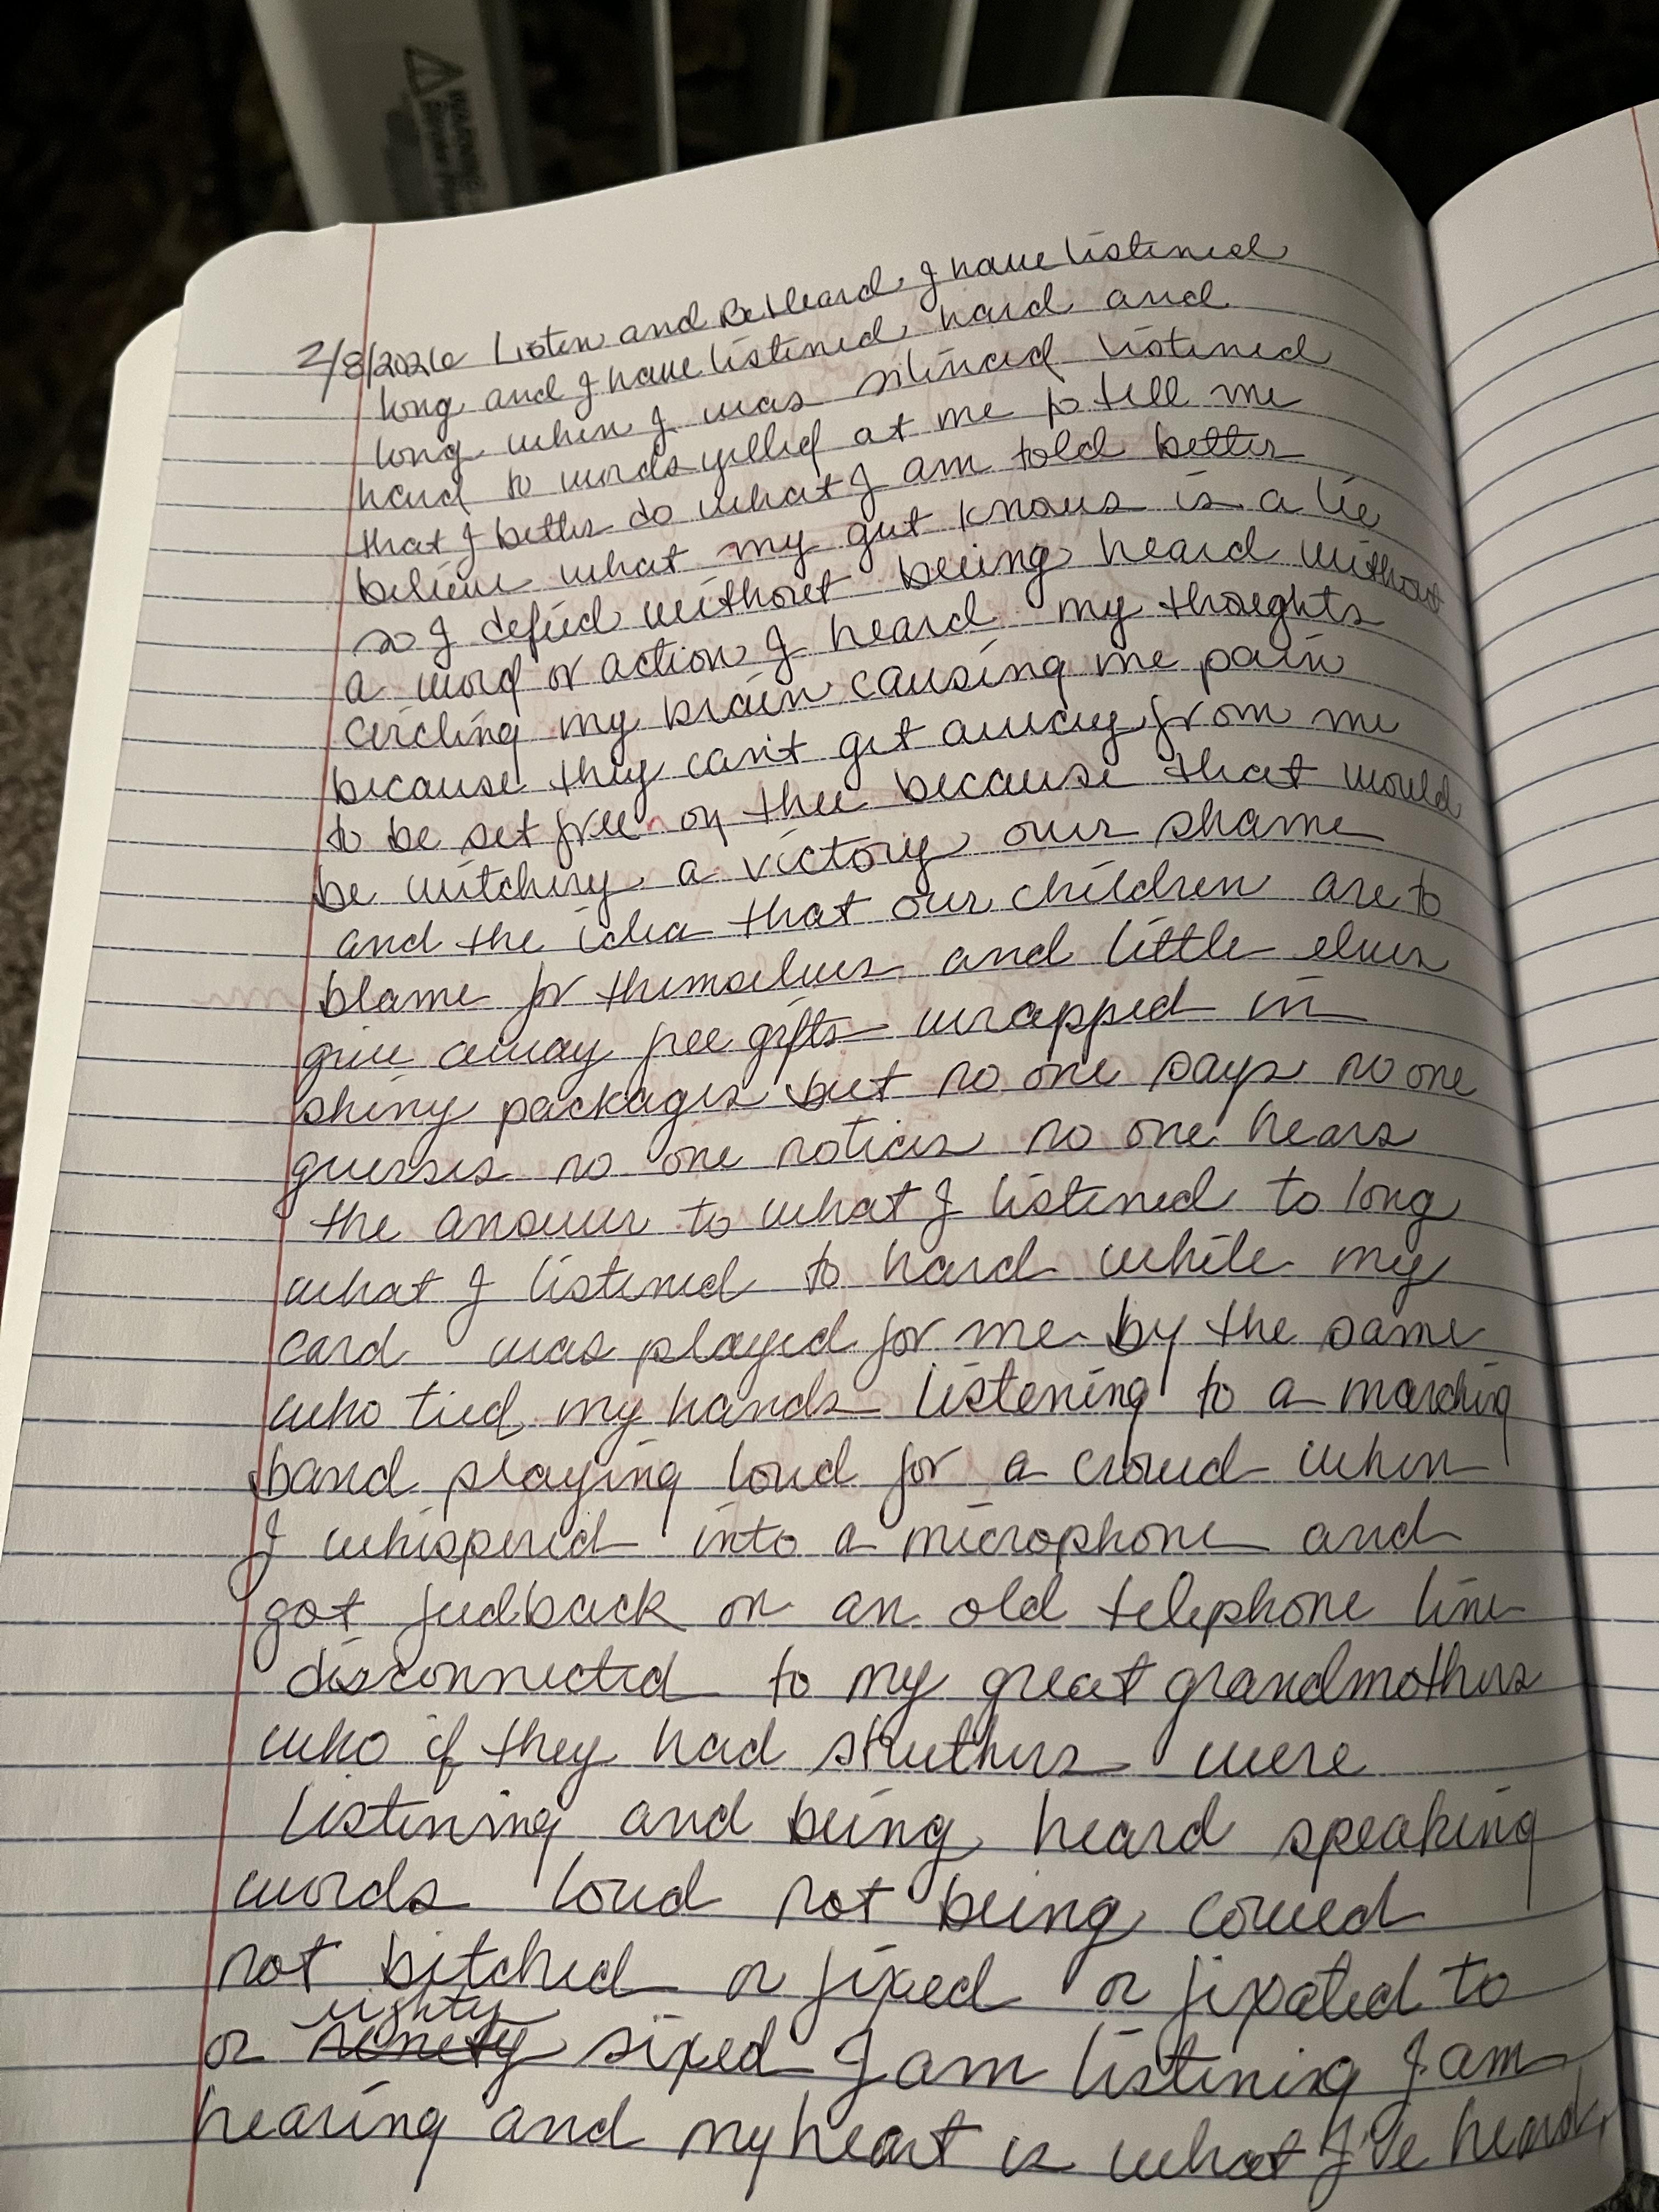 WARNING
2/8/2026 Listen and Be Heard I have listened
long and I have listened hard and
long when I was silenced listened
hard to words yelled at me to tell me
that I better do what I am told better
believe what my gut knows is a lie
so I defied without being heard without
a word or action I heard my thoughts
circling my brain causing me pain
because they can't get away from me
to be set free on thee because that would
be witchery a victory our shame
and the idea that our children are to
blame for themselves and little elves
give away free gifts wrapped in
shiny packages but no one says no one
guesses no one notices no one hears
the answer to what I listened to long
what I listened to hard while my
card was played for me by the same
who tied my hands listening to a marching
band playing loud for a crowd when
I whispered into a microphone and
got feedback on an old telephone line
disconnected to my great grandmothers
who if they had their were
listening and being heard speaking
words loud not being cowed
not bitched or fixed or fixated to
or eighty sixed I am listening I am
hearing and my heart is what I've heard.